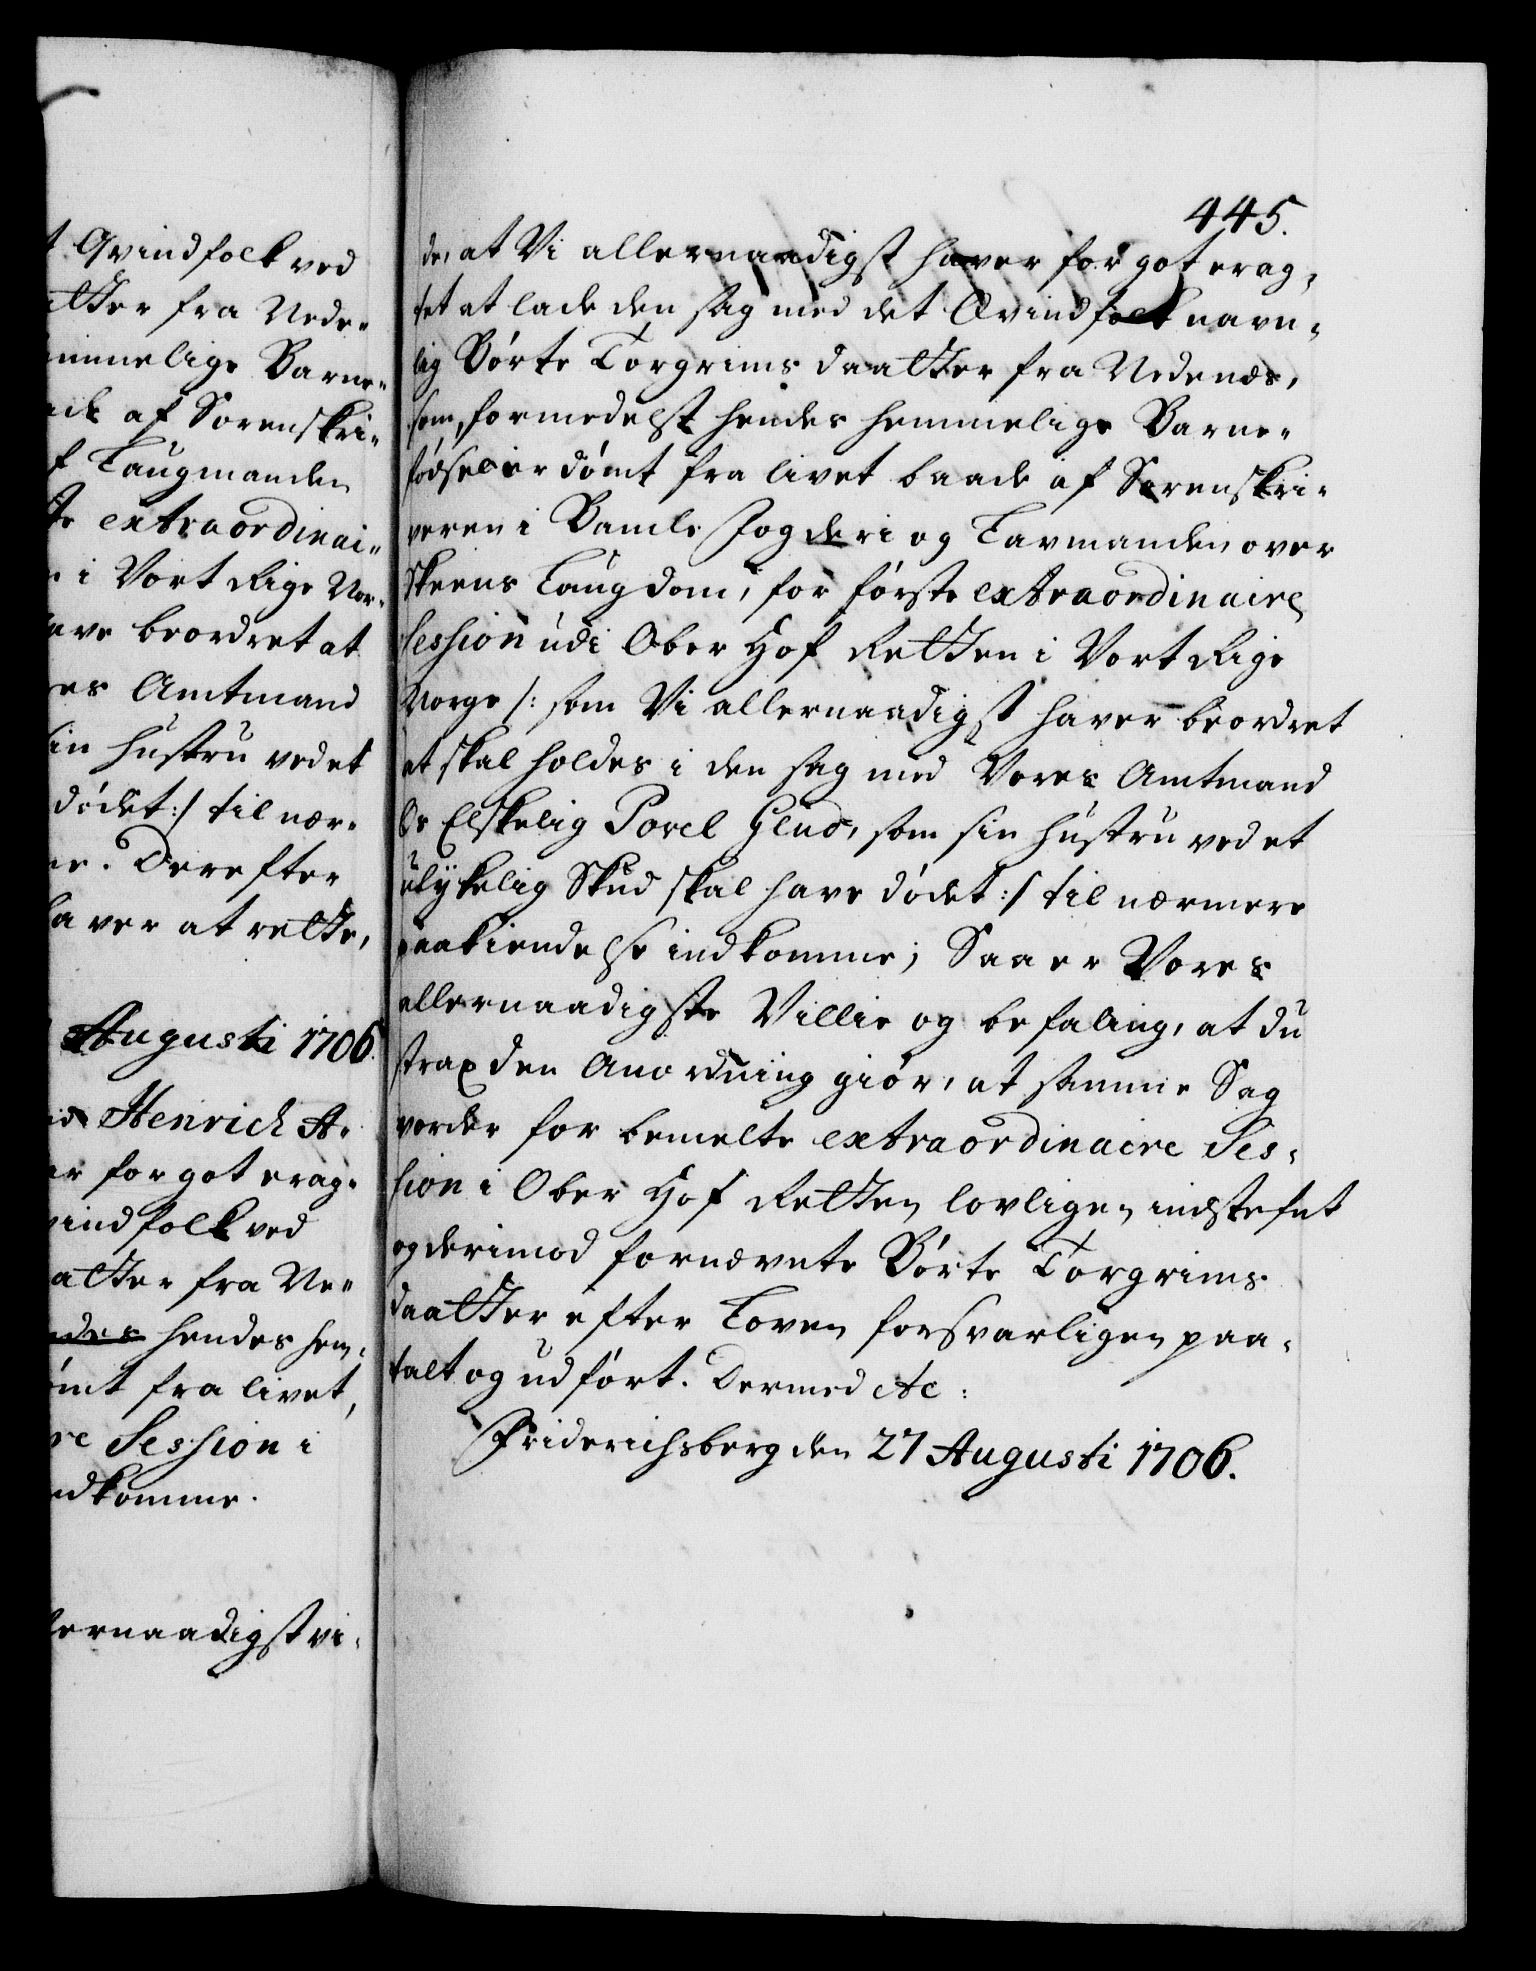 t Qvindfolk ved
atter fra Nede-
emmelige Barne-
ade af Sorenskri-
f Laugmanden
te extraordinai-
e i Vort Rige Nor-
ave beordret at
es Amtmand
sin hustru ved et
dödet :/ til nær-
e. Derefter
haver at rette,
Augusti 1706.
Henrich A-
er for got erag-
vindfolk ved
aatter fra Ne-
ndes hendes hem-
ömt fra livet,
re Session i
ndkomme.
lernaadigst vi-
445.
de, at Vi allernaadigst haver for got erag-
tet at lade den sag med det Qvindfolk navn-
lig Börte Torgrims daatter fra Nedenæs,
som, formedelst hendes hemmelige Barne-
födsel er dömt fra livet baade af Sorenskri-
veren i Bamle Fogderi og Lavmanden over
Skeens Laugdom, for förste extraordinaire
Session udi Ober Hof Retten i Vort Rige
Norge /: som Vi allernaadigst haver beordret
at skal holdes i den sag med Vores Amtmand
Os Elskelig Povel Glud, som sin hustru ved et
ulykelig Skud skal have dödet :/ til nærmere
paakiendelse indkomme; Saa er Vores
allernaadigste Villie og befaling, at du
strax den Anordning giör, at samme Sag
vorder for bemelte extraordinaire Ses-
sion i Ober Hof Retten lovligen indstefnt
og derimod fornævnte Börte Torgrims
daatter efter Loven forsvarligen paa-
talt og udfört. Dermed etc:
Friderichsberg den 27 Augusti 1706.